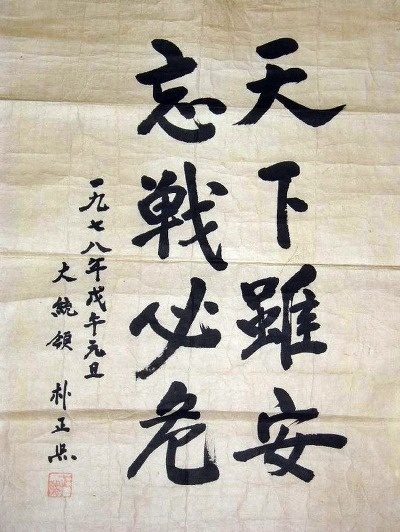 天下雖安
忘戦必危
一九七八年戊午元旦
大統領 朴正熙